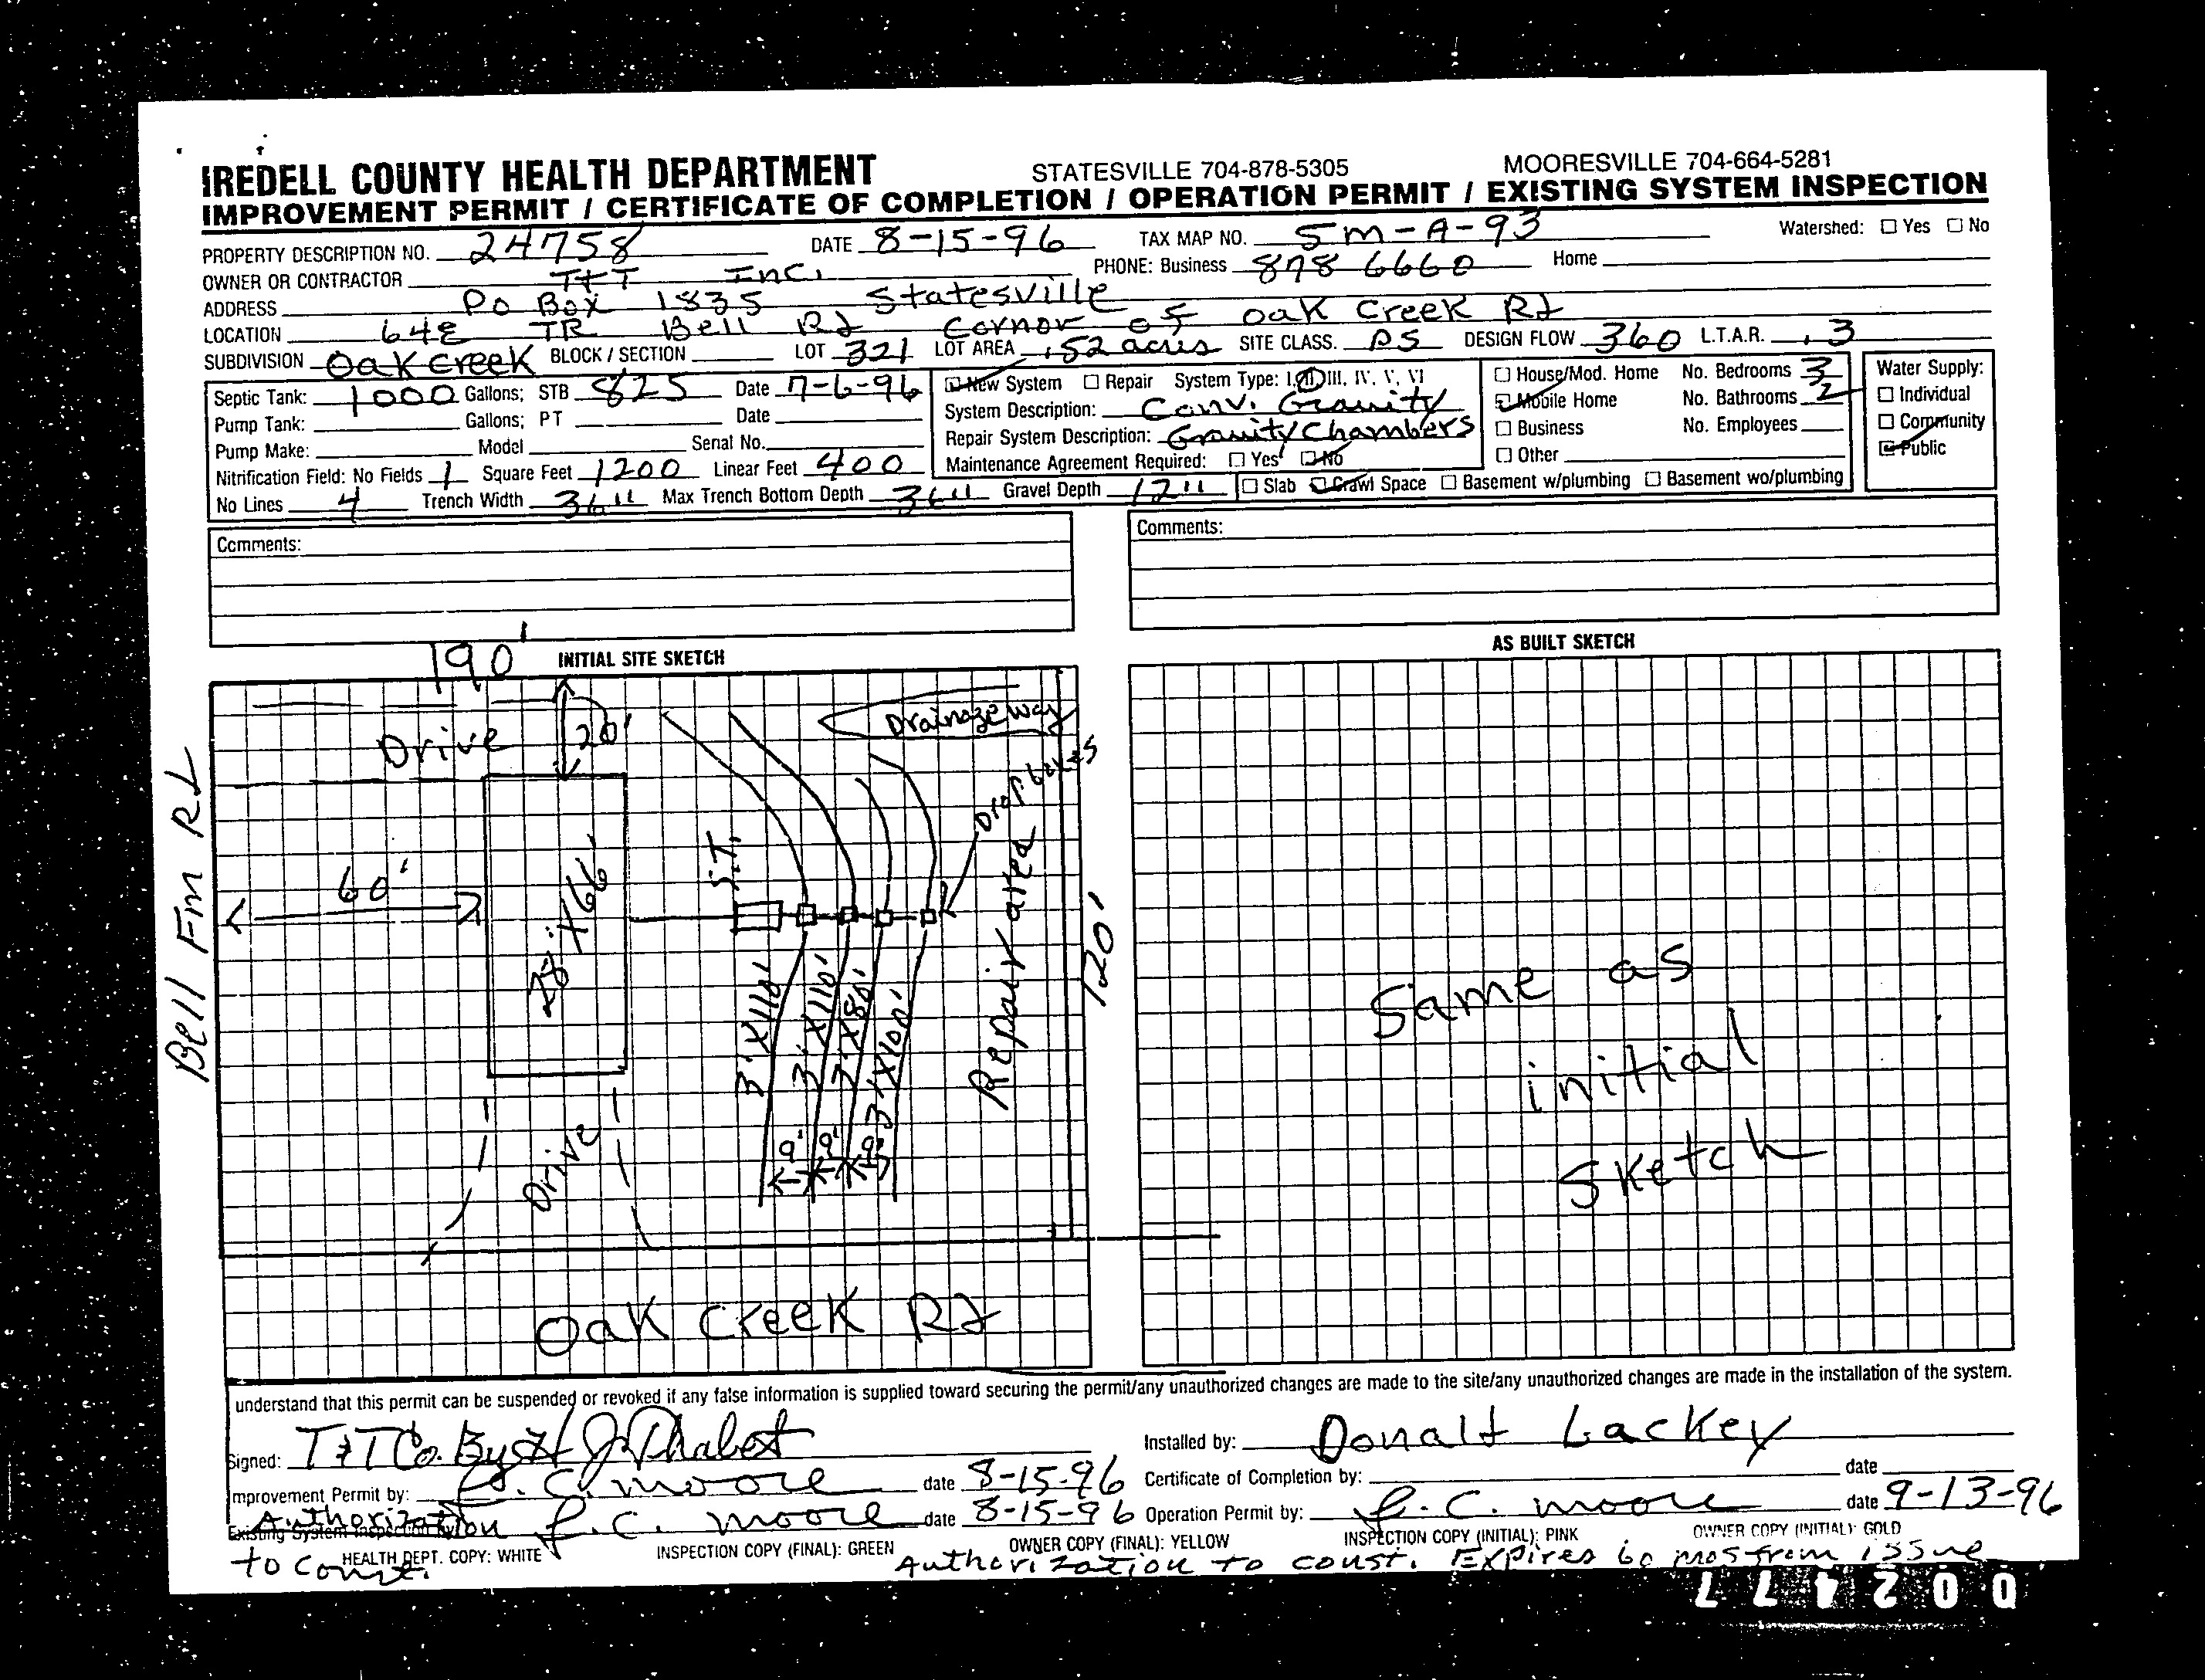 IREDELL COUNTY HEALTH DEPARTMENT STATESVILLE 704-878-5305 MOORESVILLE 704-664-5281
IMPROVEMENT PERMIT / CERTIFICATE OF COMPLETION / OPERATION PERMIT / EXISTING SYSTEM INSPECTION
PROPERTY DESCRIPTION NO. 24758 DATE 8-15-96 TAX MAP NO. 5M-A-93 Watershed: ☐ Yes ☐ No
OWNER OR CONTRACTOR T+T Inc. PHONE: Business 878 6660 Home
ADDRESS PO Box 1835 Statesville
LOCATION 64E TR Bell Rd Cornor of Oak Creek Rd
SUBDIVISION Oak Creek BLOCK / SECTION LOT 321 LOT AREA .52 acres SITE CLASS. PS DESIGN FLOW 360 L.T.A.R. .3
Septic Tank: 1000 Gallons; STB 825 Date 7-6-96
Pump Tank: Gallons; PT Date
Pump Make: Model Serial No.
Nitrification Field: No Fields 1 Square Feet 1200 Linear Feet 400
No Lines 4 Trench Width 36" Max Trench Bottom Depth 36" Gravel Depth 12"
☑ New System ☐ Repair System Type: I, II, III, IV, V, VI
System Description: Conv. Gravity
Repair System Description: Gravity Chambers
Maintenance Agreement Required: ☐ Yes ☑ No
☐ Slab ☑ Crawl Space ☐ Basement w/plumbing ☐ Basement wo/plumbing
☐ House/Mod. Home No. Bedrooms 3
☑ Mobile Home No. Bathrooms 2
☐ Business No. Employees
☐ Other
Water Supply:
☐ Individual
☐ Community
☑ Public
Comments:
Comments:
190' INITIAL SITE SKETCH
Drive
20'
Drainage Way
Drop boxes
Bell Fm Rd
60'
28' X 66'
S.T.
Repair area
120'
3' X 110'
3' X 110'
3' X 80'
3' X 100'
9' 9' 9'
Drive
Oak Creek Rd
AS BUILT SKETCH
Same as
initial
Sketch
understand that this permit can be suspended or revoked if any false information is supplied toward securing the permit/any unauthorized changes are made to the site/any unauthorized changes are made in the installation of the system.
Signed: T & T Co. By
Installed by: Donald Lackey
mprovement Permit by: C. Moore date 8-15-96
Certificate of Completion by: date
Existing System Inspection by: Authorization C. Moore date 8-15-96
to Const.
Operation Permit by: C. Moore date 9-13-96
HEALTH DEPT. COPY: WHITE INSPECTION COPY (FINAL): GREEN OWNER COPY (FINAL): YELLOW INSPECTION COPY (INITIAL): PINK OWNER COPY (INITIAL): GOLD
Authorization to const. Expires 60 mos from issue
002477